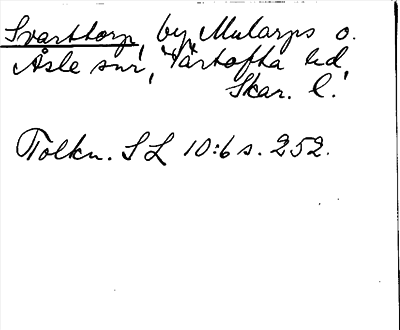 Svarttorp, by, Mularps o.
Åsle snr, Vartofta hd,
Skar. l.
Tolkn. SL 10:6 s. 252.